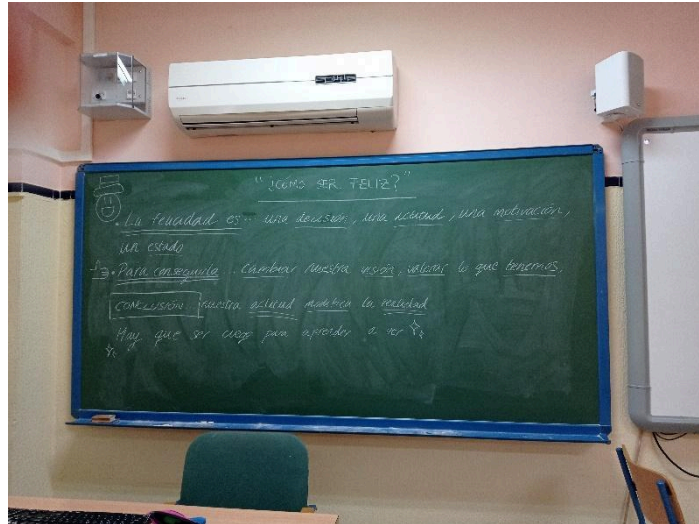 "¿CÓMO SER FELIZ?"
• La felicidad es... una decisión, una actitud, una motivación,
un estado
• Para conseguirla... cambiar nuestra visión, valorar lo que tenemos.
CONCLUSIÓN nuestra actitud modifica la realidad
Hay que ser ciego para aprender a ver